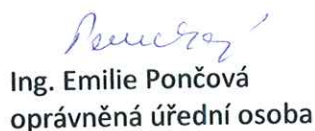 Ing. Emilie Pončová
oprávněná úřední osoba